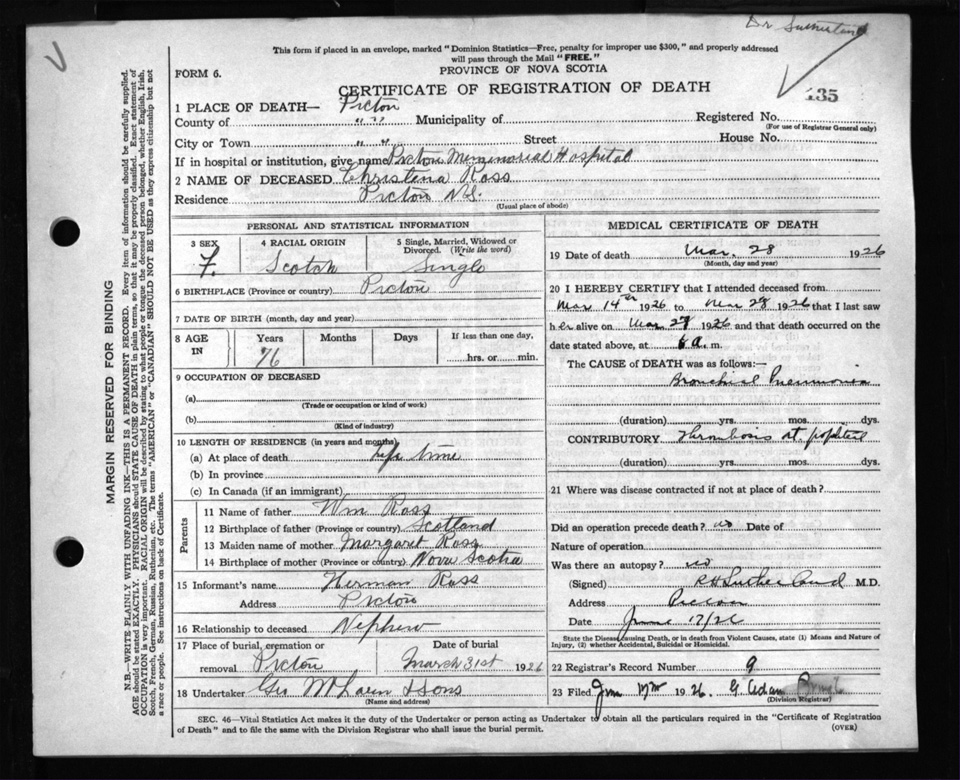 Dr Sutherland
This form if placed in an envelope, marked "Dominion Statistics—Free, penalty for improper use $300," and properly addressed
will pass through the Mail "FREE."
FORM 6.
PROVINCE OF NOVA SCOTIA
CERTIFICATE OF REGISTRATION OF DEATH
435
1 PLACE OF DEATH— Pictou
County of " " Municipality of Registered No.
(For use of Registrar General only)
City or Town " " Street House No.
If in hospital or institution, give name Pictou Memmorial Hospital
2 NAME OF DECEASED Christena Ross
Residence Pictou N.S.
(Usual place of abode)
MARGIN RESERVED FOR BINDING
N.B.—WRITE PLAINLY WITH UNFADING INK—THIS IS A PERMANENT RECORD. Every item of information should be carefully supplied.
AGE should be stated EXACTLY. PHYSICIANS should STATE CAUSE OF DEATH in plain terms, so that it may be properly classified. Exact statement of
OCCUPATION is very important. RACIAL ORIGIN will be described by stating to what people or tongue the deceased person belonged, whether English, Irish,
Scotch, French, German, Russian, Ruthenian, etc. The terms "AMERICAN" or "CANADIAN" SHOULD NOT BE USED as they express citizenship but not
a race or people. See instructions on back of Certificate.
PERSONAL AND STATISTICAL INFORMATION
3 SEX 4 RACIAL ORIGIN 5 Single, Married, Widowed or
Divorced. (Write the word)
F. Scotch Single
6 BIRTHPLACE (Province or country) Pictou
7 DATE OF BIRTH (month, day and year)
8 AGE IN Years Months Days If less than one day,
76 hrs. or min.
9 OCCUPATION OF DECEASED
(a)
(Trade or occupation or kind of work)
(b)
(Kind of industry)
10 LENGTH OF RESIDENCE (in years and months)
(a) At place of death Life time
(b) In province
(c) In Canada (if an immigrant)
Parents
11 Name of father Wm Ross
12 Birthplace of father (Province or country) Scotland
13 Maiden name of mother Margaret Ross
14 Birthplace of mother (Province or country) Nova Scotia
15 Informant's name Herman Ross
Address Pictou
16 Relationship to deceased Nephew
17 Place of burial, cremation or Date of burial
removal Pictou March 31st 1926
18 Undertaker Geo McLaren & Sons
(Name and address)
MEDICAL CERTIFICATE OF DEATH
19 Date of death Mar. 28 1926
(Month, day and year)
20 I HEREBY CERTIFY that I attended deceased from
Mar 14th 1926 to Mar 28 1926 that I last saw
her alive on Mar 27 1926 and that death occurred on the
date stated above, at 6 a. m.
The CAUSE OF DEATH was as follows:—
Bronchial Pneumonia
(duration) yrs. mos. dys.
CONTRIBUTORY Thrombosis at popliteal
(duration) yrs. mos. dys.
21 Where was disease contracted if not at place of death?
Did an operation precede death? no Date of
Nature of operation
Was there an autopsy? no
(Signed) R H Sutherland M.D.
Address Pictou
Date June 17/26
State the Disease causing Death, or in death from Violent Causes, state (1) Means and Nature of
Injury, (2) whether Accidental, Suicidal or Homicidal.
22 Registrar's Record Number 9
23 Filed 1926. G.
(Division Registrar)
SEC. 46—Vital Statistics Act makes it the duty of the Undertaker or person acting as Undertaker to obtain all the particulars required in the "Certificate of Registration
of Death" and to file the same with the Division Registrar who shall issue the burial permit.
(OVER)